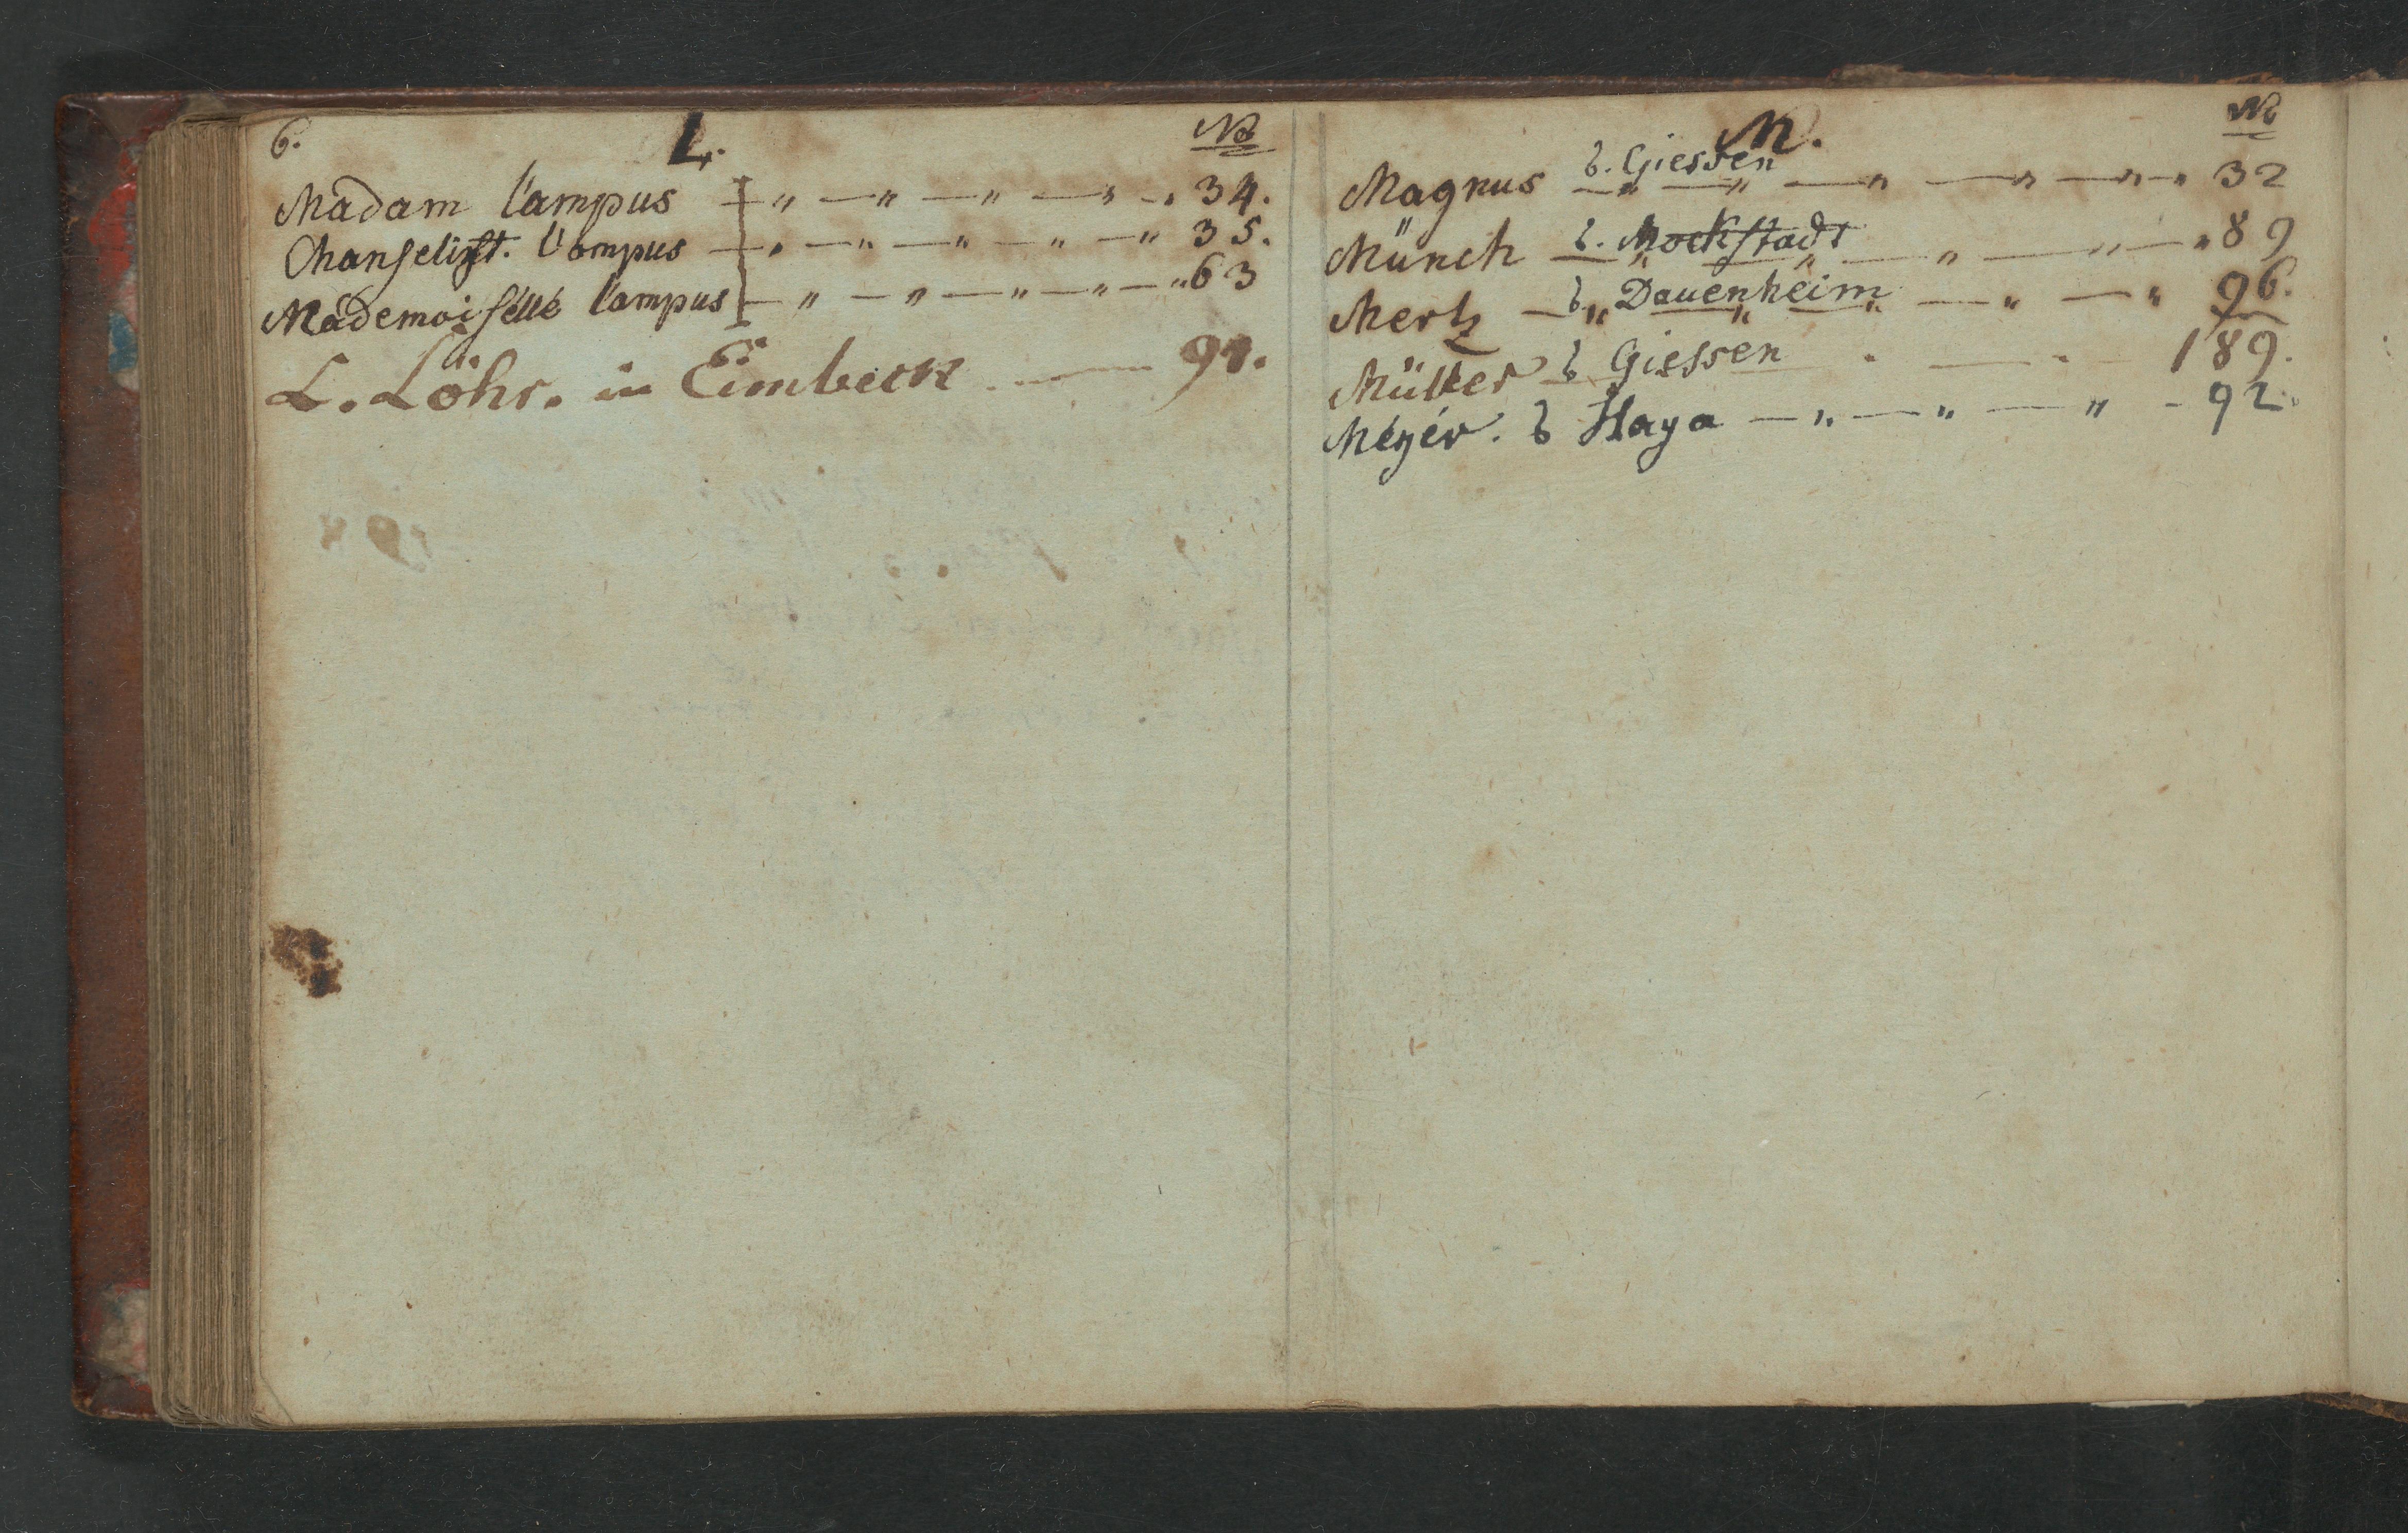 6. L. No
Madam Lampus — " — " — " — " — " 34.
Chanselist. Lampus — " — " — " — " — " 35.
Mademoiselle Lampus — " — " — " — " — " 63
L. Löhr. in Eimbeck — 91.
M. No
Magnus b. Giessen — " — " — " — " — " 32
Münch b. Mockstadt — " — " — " 89
Mertz b Dauenheim — " — " 96.
Müller b Giessen — 189.
Meyer. b Haya — " — " — " — 92.